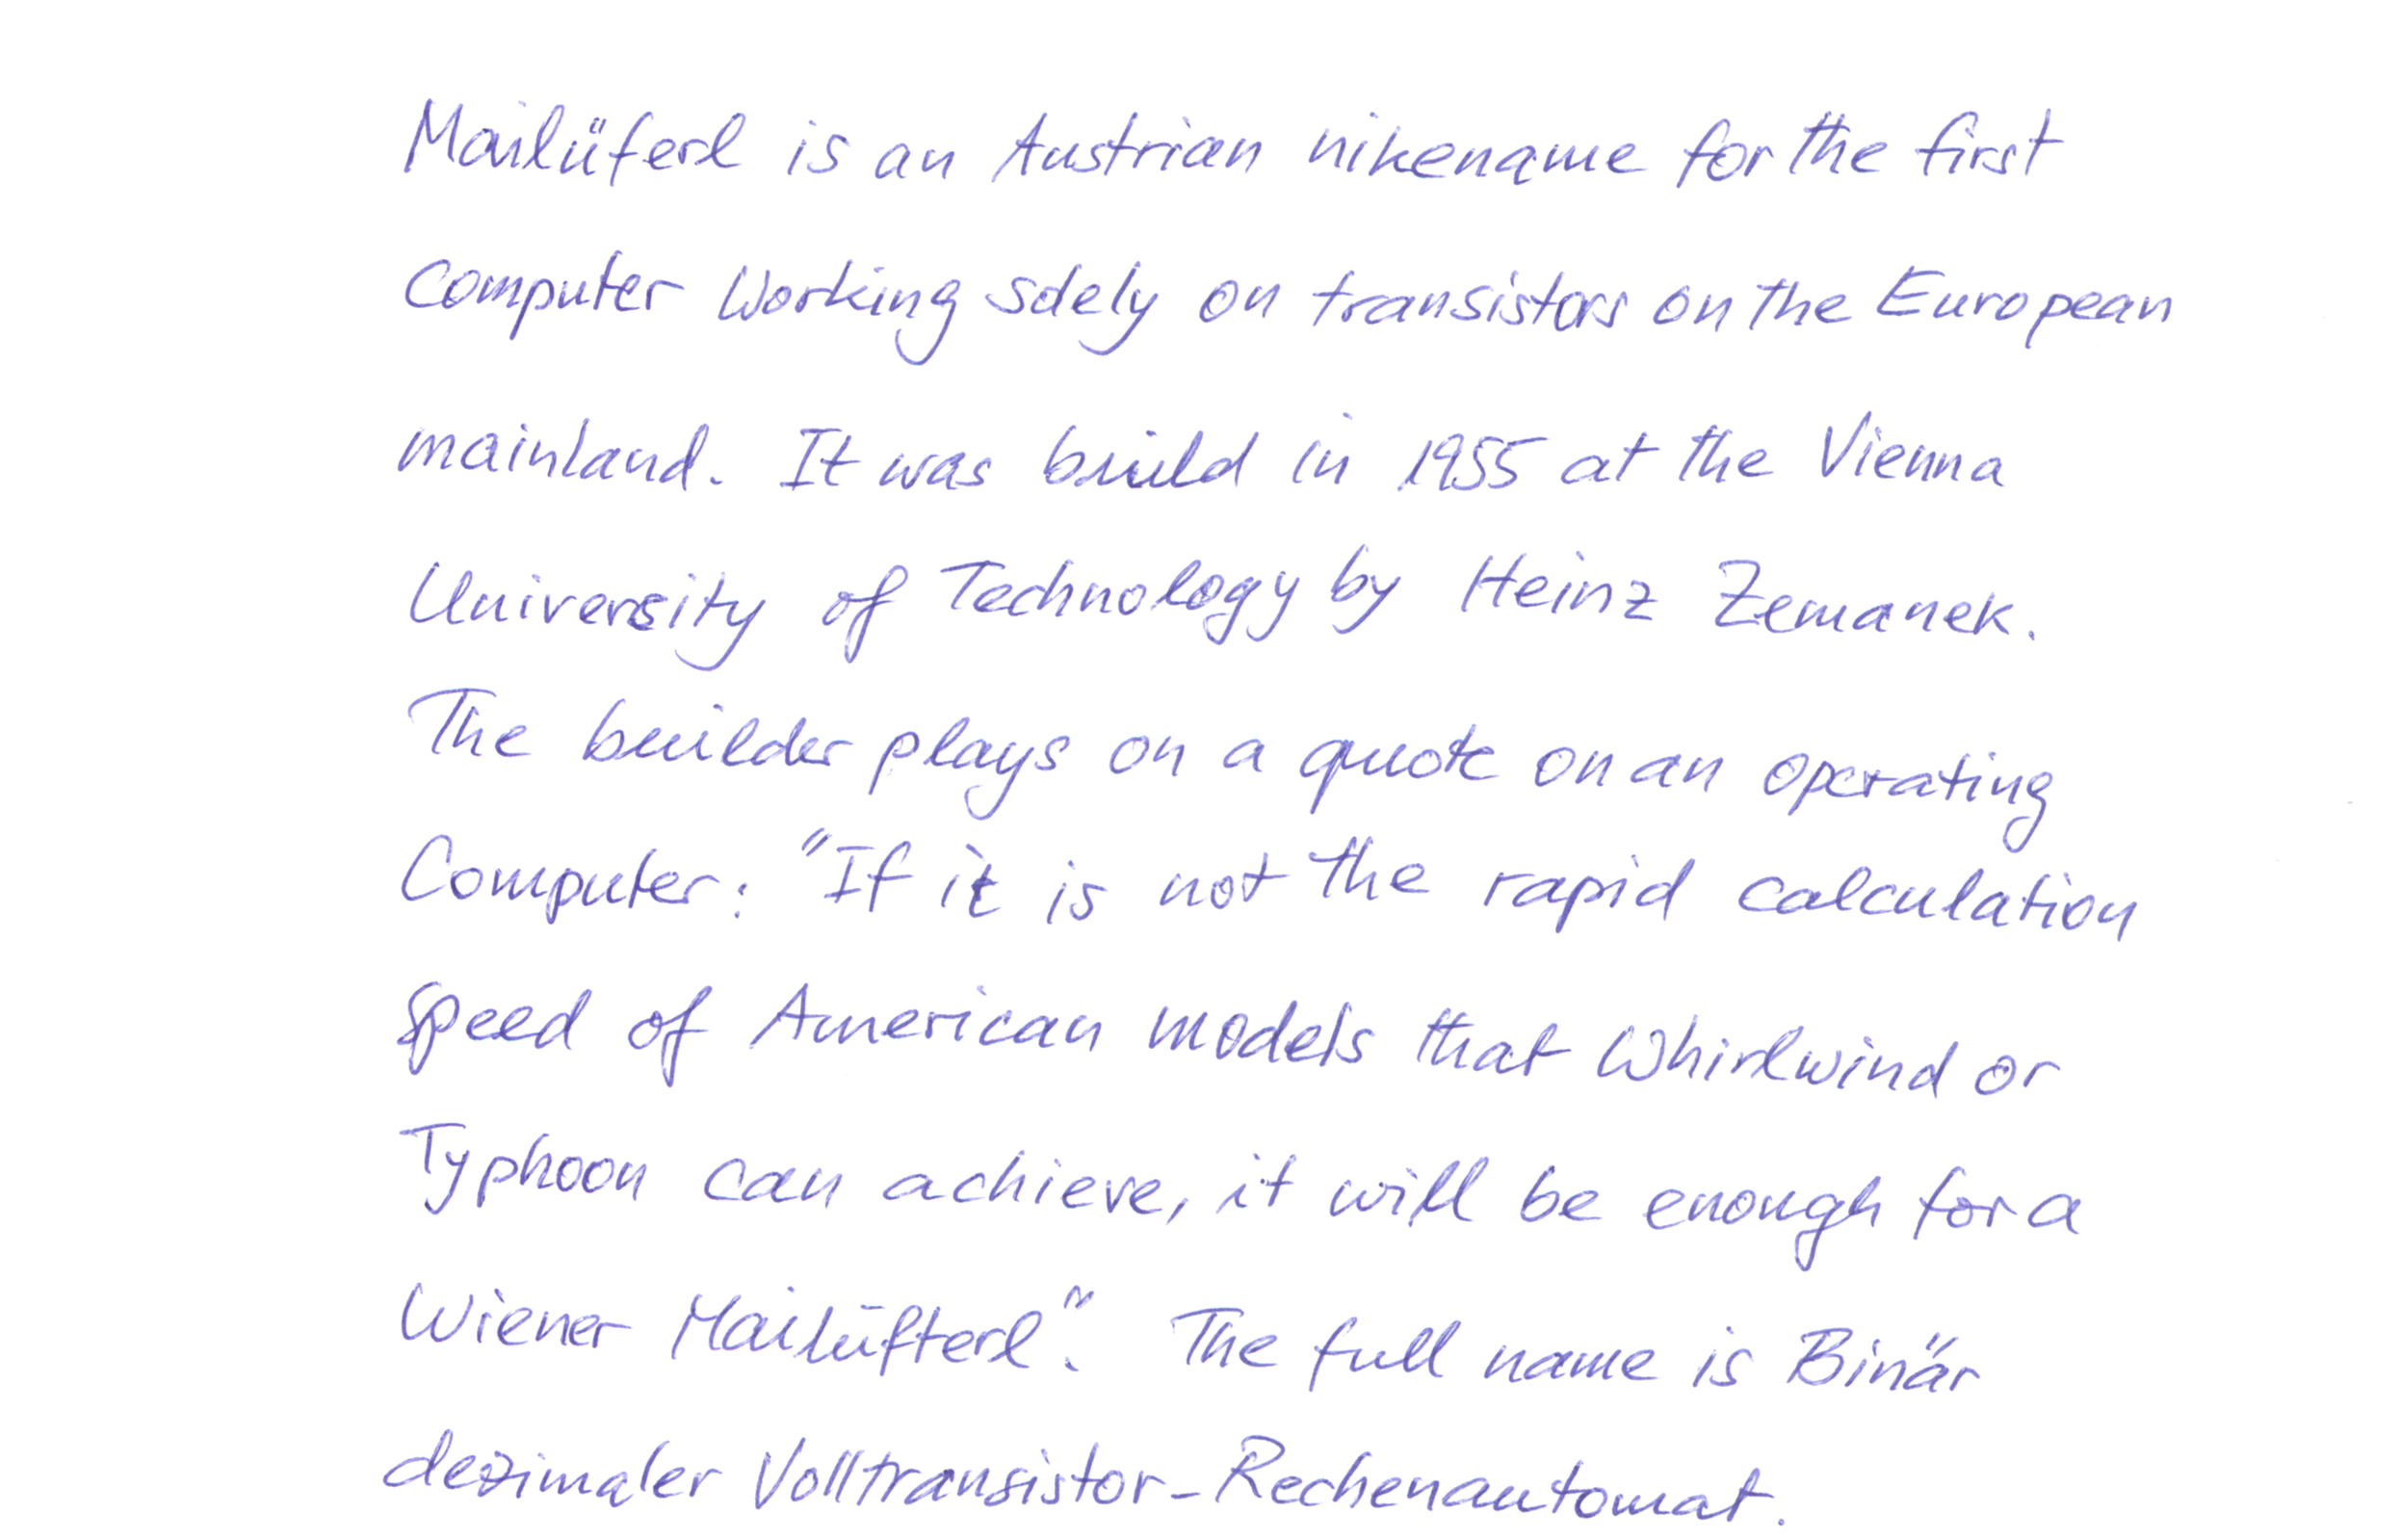 Mailüferl is an Austrian nikename for the first
Computer Working solely on transistors on the European
mainland. It was build in 1955 at the Vienna
University of Technology by Heinz Zemanek.
The builder plays on a quote on an operating
Computer: "If it is not the rapid calculation
Speed of American models that Whirlwind or
Typhoon can achieve, it will be enough for a
Wiener Mailüfterl". The full name is Binär
dezimaler Volltransistor-Rechenautomat.